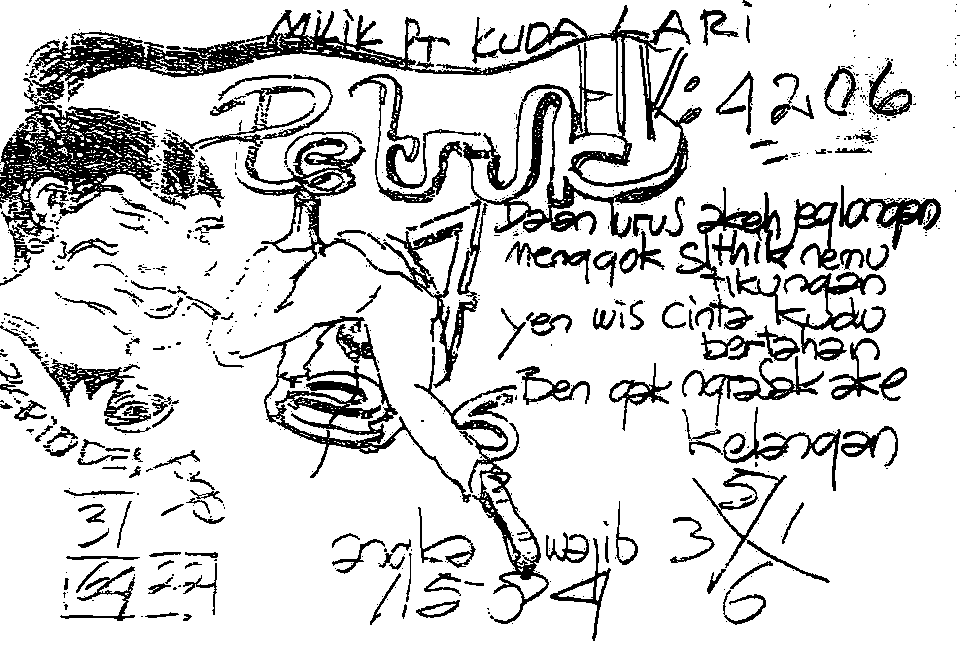 MILIK PT KUDA LARI
Pebruk: 4206
Dalan lurus akeh jeglongan
menggok sithik nemu
tikungan
yen wis cinta kudu
bertahan
Ben gak ngrasakake
Kelangan
7
6
5
3 1
6
31
64 22
angka wajib
15-34